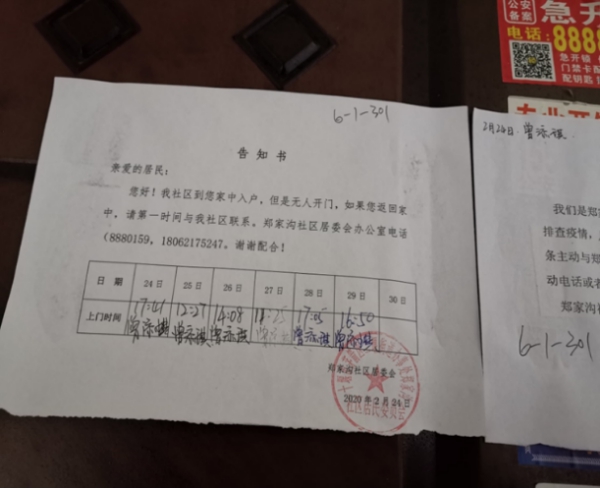 公安
备案
急升
电话：8888
急开锁
门禁卡配
配钥匙
6-1-301
告知书
亲爱的居民：
您好！我社区到您家中入户，但是无人开门，如果您返回家
中，请第一时间与我社区联系。郑家沟社区居委会办公室电话
（8880159，18062175247。谢谢配合！
日期 24日 25日 26日 27日 28日 29日 30日
上门时间 17:41 12:27 14:08 17:35 16:50
郑家沟社区居委会
2020年2月24日
2月24日
我们是郑
排查疫情，
条主动与郑
动电话或者
郑家沟社
6-1-301